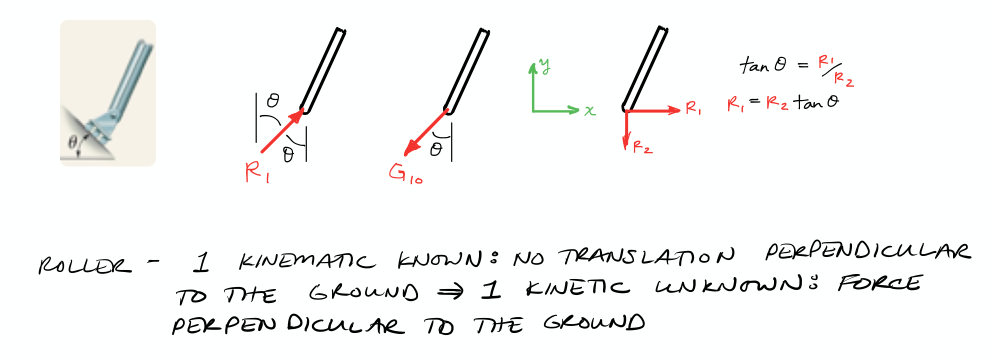 θ
θ
θ
R₁
θ
G₁₀
y
x
R₁
R₂
tan θ = R₁/R₂
R₁ = R₂ tan θ
ROLLER - 1 KINEMATIC KNOWN: NO TRANSLATION PERPENDICULAR
TO THE GROUND ⇒ 1 KINETIC UNKNOWN: FORCE
PERPENDICULAR TO THE GROUND